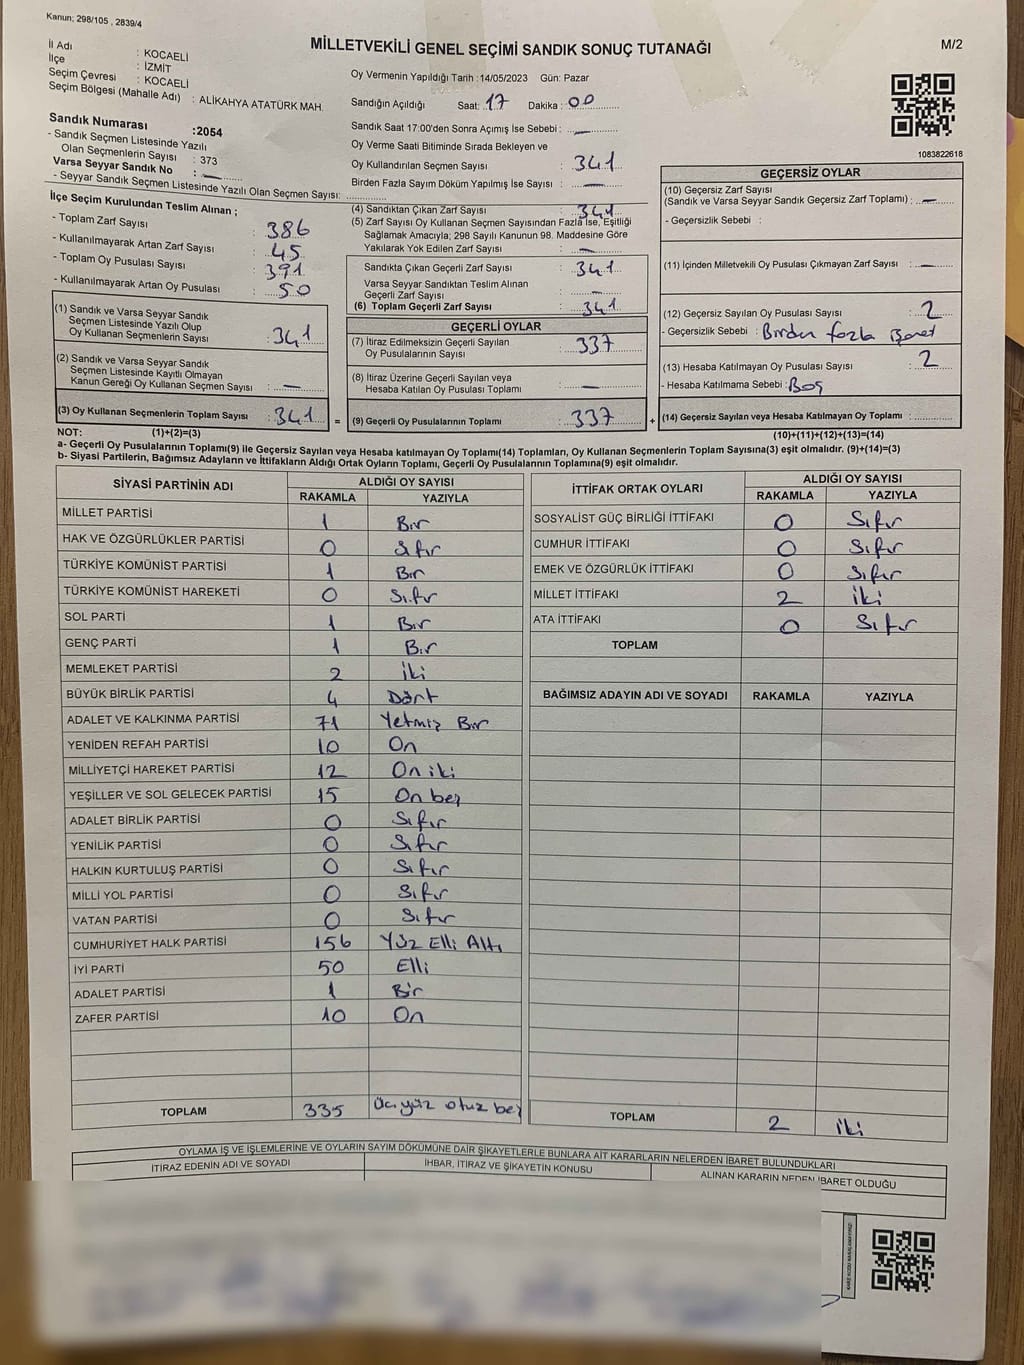 Kanun; 298/105 , 2839/4
MİLLETVEKİLİ GENEL SEÇİMİ SANDIK SONUÇ TUTANAĞI
M/2
İl Adı : KOCAELİ
İlçe : İZMİT
Seçim Çevresi : KOCAELİ
Seçim Bölgesi (Mahalle Adı) : ALİKAHYA ATATÜRK MAH.
Sandık Numarası :2054
- Sandık Seçmen Listesinde Yazılı
Olan Seçmenlerin Sayısı : 373
Varsa Seyyar Sandık No : —
- Seyyar Sandık Seçmen Listesinde Yazılı Olan Seçmen Sayısı:
İlçe Seçim Kurulundan Teslim Alınan ;
- Toplam Zarf Sayısı : 386
- Kullanılmayarak Artan Zarf Sayısı : 45
- Toplam Oy Pusulası Sayısı : 391
- Kullanılmayarak Artan Oy Pusulası : 50
(1) Sandık ve Varsa Seyyar Sandık
Seçmen Listesinde Yazılı Olup
Oy Kullanan Seçmenlerin Sayısı : 341
(2) Sandık ve Varsa Seyyar Sandık
Seçmen Listesinde Kayıtlı Olmayan
Kanun Gereği Oy Kullanan Seçmen Sayısı : —
(3) Oy Kullanan Seçmenlerin Toplam Sayısı : 341 =
Oy Vermenin Yapıldığı Tarih : 14/05/2023 Gün: Pazar
Sandığın Açıldığı Saat: 17 Dakika : 00
Sandık Saat 17:00'den Sonra Açımış İse Sebebi : —
Oy Verme Saati Bitiminde Sırada Bekleyen ve
Oy Kullandırılan Seçmen Sayısı : 341
Birden Fazla Sayım Döküm Yapılmış İse Sayısı : —
(4) Sandıktan Çıkan Zarf Sayısı : 341
(5) Zarf Sayısı Oy Kullanan Seçmen Sayısından Fazla İse, Eşitliği
Sağlamak Amacıyla; 298 Sayılı Kanunun 98. Maddesine Göre
Yakılarak Yok Edilen Zarf Sayısı : —
Sandıkta Çıkan Geçerli Zarf Sayısı : 341
Varsa Seyyar Sandıktan Teslim Alınan
Geçerli Zarf Sayısı : —
(6) Toplam Geçerli Zarf Sayısı : 341
GEÇERLİ OYLAR
(7) İtiraz Edilmeksizin Geçerli Sayılan
Oy Pusulalarının Sayısı : 337
(8) İtiraz Üzerine Geçerli Sayılan veya
Hesaba Katılan Oy Pusulası Toplamı : —
(9) Geçerli Oy Pusulalarının Toplamı : 337 +
1083822618
GEÇERSİZ OYLAR
(10) Geçersiz Zarf Sayısı
(Sandık ve Varsa Seyyar Sandık Geçersiz Zarf Toplamı) : —
- Geçersizlik Sebebi :
(11) İçinden Milletvekili Oy Pusulası Çıkmayan Zarf Sayısı : —
(12) Geçersiz Sayılan Oy Pusulası Sayısı : 2
- Geçersizlik Sebebi : Birden fazla işaret
(13) Hesaba Katılmayan Oy Pusulası Sayısı : 2
- Hesaba Katılmama Sebebi : Boş
(14) Geçersiz Sayılan veya Hesaba Katılmayan Oy Toplamı :
NOT: (1)+(2)=(3) (10)+(11)+(12)+(13)=(14)
a- Geçerli Oy Pusulalarının Toplamı(9) ile Geçersiz Sayılan veya Hesaba katılmayan Oy Toplamı(14) Toplamları, Oy Kullanan Seçmenlerin Toplam Sayısına(3) eşit olmalıdır. (9)+(14)=(3)
b- Siyasi Partilerin, Bağımsız Adayların ve İttifakların Aldığı Ortak Oyların Toplamı, Geçerli Oy Pusulalarının Toplamına(9) eşit olmalıdır.
SİYASİ PARTİNİN ADI ALDIĞI OY SAYISI
RAKAMLA YAZIYLA
MİLLET PARTİSİ 1 Bir
HAK VE ÖZGÜRLÜKLER PARTİSİ 0 Sıfır
TÜRKİYE KOMÜNİST PARTİSİ 1 Bir
TÜRKİYE KOMÜNİST HAREKETİ 0 Sıfır
SOL PARTİ 1 Bir
GENÇ PARTİ 1 Bir
MEMLEKET PARTİSİ 2 İki
BÜYÜK BİRLİK PARTİSİ 4 Dört
ADALET VE KALKINMA PARTİSİ 71 Yetmiş Bir
YENİDEN REFAH PARTİSİ 10 On
MİLLİYETÇİ HAREKET PARTİSİ 12 On iki
YEŞİLLER VE SOL GELECEK PARTİSİ 15 On beş
ADALET BİRLİK PARTİSİ 0 Sıfır
YENİLİK PARTİSİ 0 Sıfır
HALKIN KURTULUŞ PARTİSİ 0 Sıfır
MİLLİ YOL PARTİSİ 0 Sıfır
VATAN PARTİSİ 0 Sıfır
CUMHURİYET HALK PARTİSİ 156 Yüz Elli Altı
İYİ PARTİ 50 Elli
ADALET PARTİSİ 1 Bir
ZAFER PARTİSİ 10 On
TOPLAM 335 Üçyüz otuz beş
İTTİFAK ORTAK OYLARI ALDIĞI OY SAYISI
RAKAMLA YAZIYLA
SOSYALİST GÜÇ BİRLİĞİ İTTİFAKI 0 Sıfır
CUMHUR İTTİFAKI 0 Sıfır
EMEK VE ÖZGÜRLÜK İTTİFAKI 0 Sıfır
MİLLET İTTİFAKI 2 İki
ATA İTTİFAKI 0 Sıfır
TOPLAM
BAĞIMSIZ ADAYIN ADI VE SOYADI RAKAMLA YAZIYLA
TOPLAM 2 İki
OYLAMA İŞ VE İŞLEMLERİNE VE OYLARIN SAYIM DÖKÜMÜNE DAİR ŞİKAYETLERLE BUNLARA AİT KARARLARIN NELERDEN İBARET BULUNDUKLARI
İTİRAZ EDENİN ADI VE SOYADI İHBAR, İTİRAZ VE ŞİKAYETİN KONUSU ALINAN KARARIN NEDEN İBARET OLDUĞU